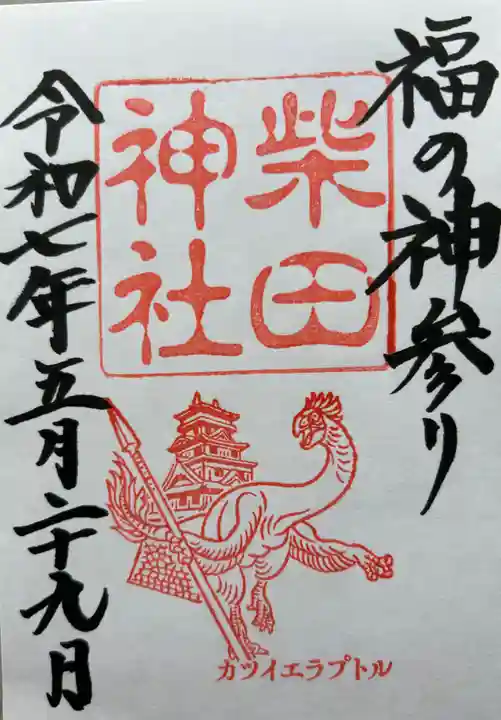 福の神参り
柴田
神社
令和七年五月二十九日
カツイエラプトル